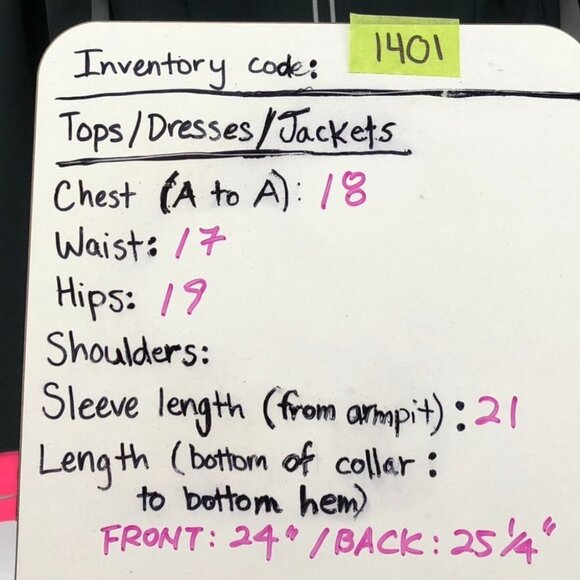 Inventory code: 1401
Tops/Dresses/Jackets
Chest (A to A): 18
Waist: 17
Hips: 19
Shoulders:
Sleeve length (from armpit): 21
Length (bottom of collar :
to bottom hem)
FRONT: 24" / BACK: 25 1/4"